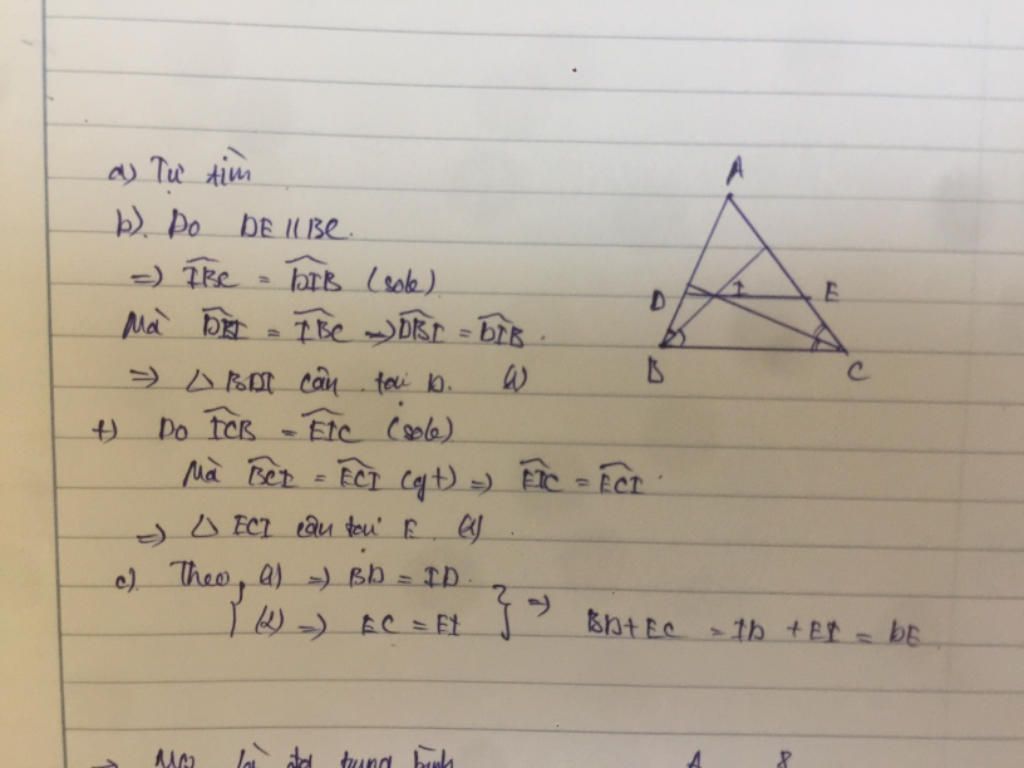 a) Tự tìm
b). Do DE // BC.
=) \widehat{IBC} = \widehat{DIB} (sole)
Mà \widehat{DBI} = \widehat{IBC} => \widehat{DBI} = \widehat{DIB}.
=) △ BDI cân tại D. (1)
+) Do \widehat{ICB} = \widehat{EIC} (sole)
Mà \widehat{BCI} = \widehat{ECI} (gt) =) \widehat{EIC} = \widehat{ECI}.
=) △ ECI cân tại E. (2).
c). Theo, (1) =) BD = ID.
(2) =) EC = EI } =) BD + EC = ID + EI = DE
A
D I E
B C
A 8